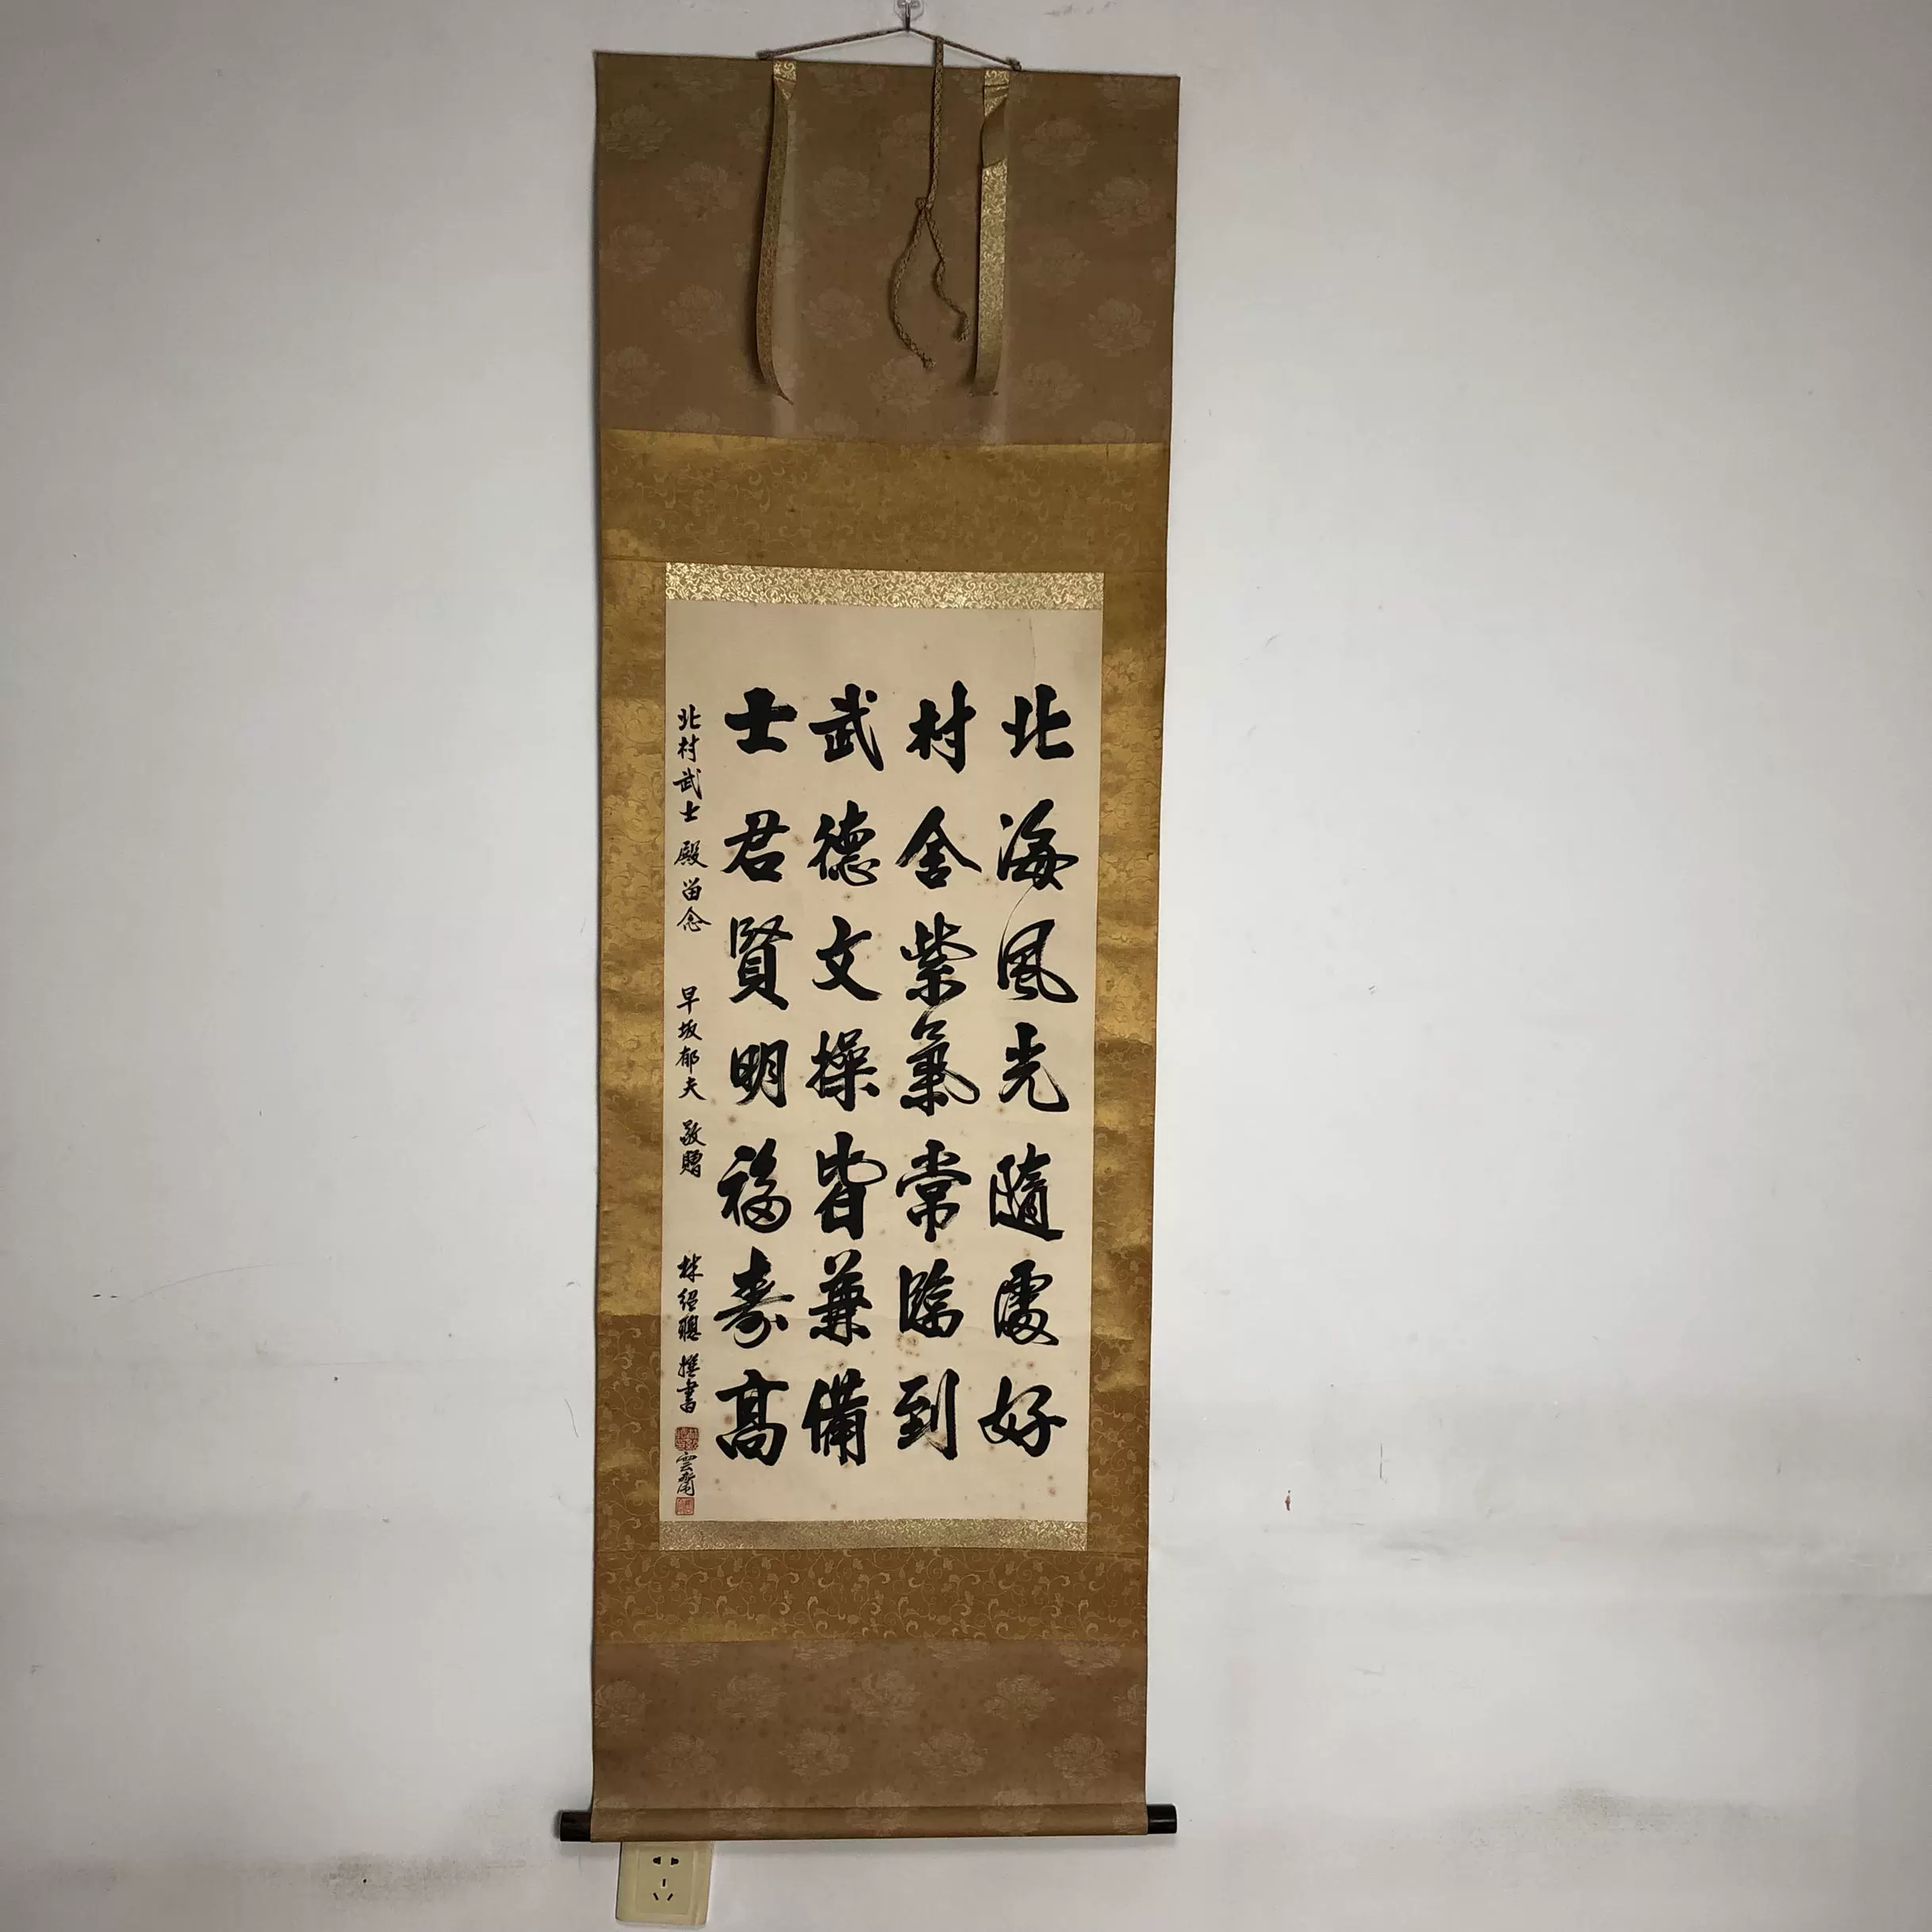 北海風光隨處好
村舍紫氣常臨到
武德文操皆兼備
士君賢明福壽高
北村武士殿留念 早坂郁夫敬贈 林紹聰撰書
雲齋